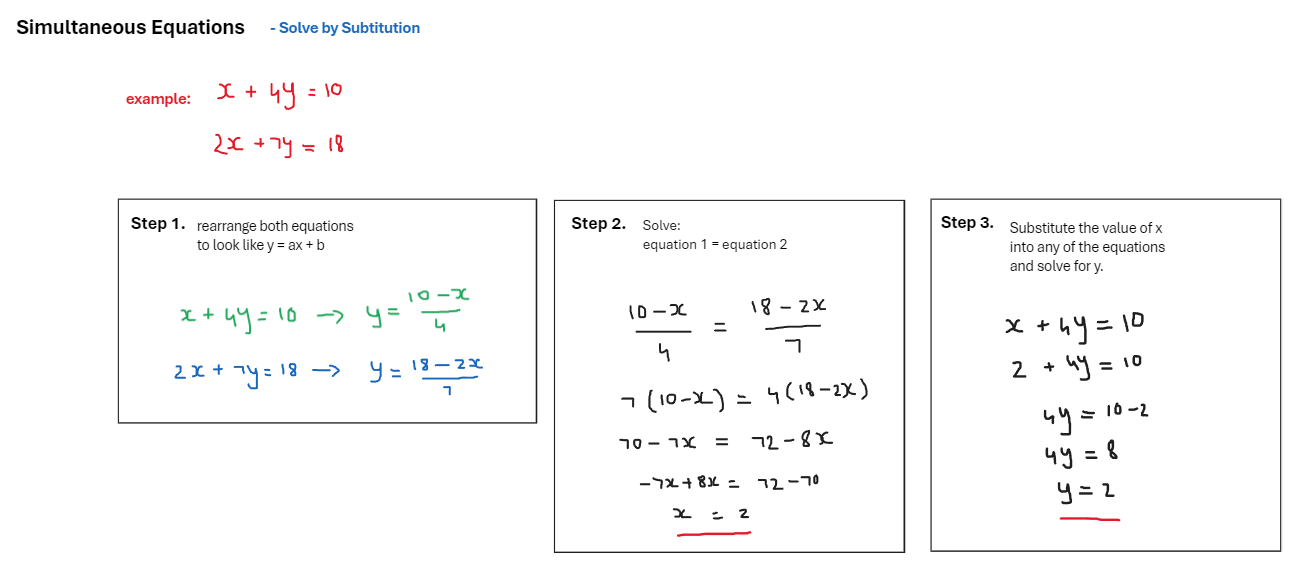 Simultaneous Equations - Solve by Subtitution
example: x + 4y = 10
2x + 7y = 18
Step 1. rearrange both equations
to look like y = ax + b
x + 4y = 10 → y = (10 − x)/4
2x + 7y = 18 → y = (18 − 2x)/7
Step 2. Solve:
equation 1 = equation 2
(10 − x)/4 = (18 − 2x)/7
7(10 − x) = 4(18 − 2x)
70 − 7x = 72 − 8x
−7x + 8x = 72 − 70
x = 2
Step 3. Substitute the value of x
into any of the equations
and solve for y.
x + 4y = 10
2 + 4y = 10
4y = 10 − 2
4y = 8
y = 2